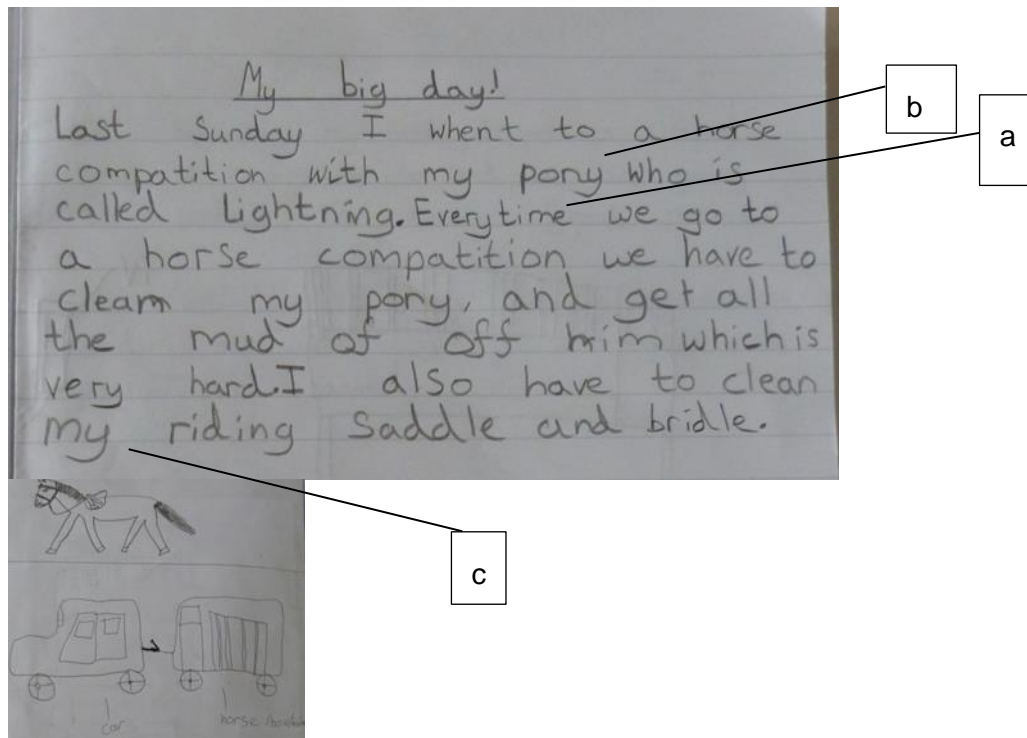 My big day!
Last Sunday I whent to a horse
compatition with my pony who is
called Lightning. Everytime we go to
a horse compatition we have to
clean my pony, and get all
the mud of off him which is
very hard. I also have to clean
my riding saddle and bridle.
b
a
c
car
horse